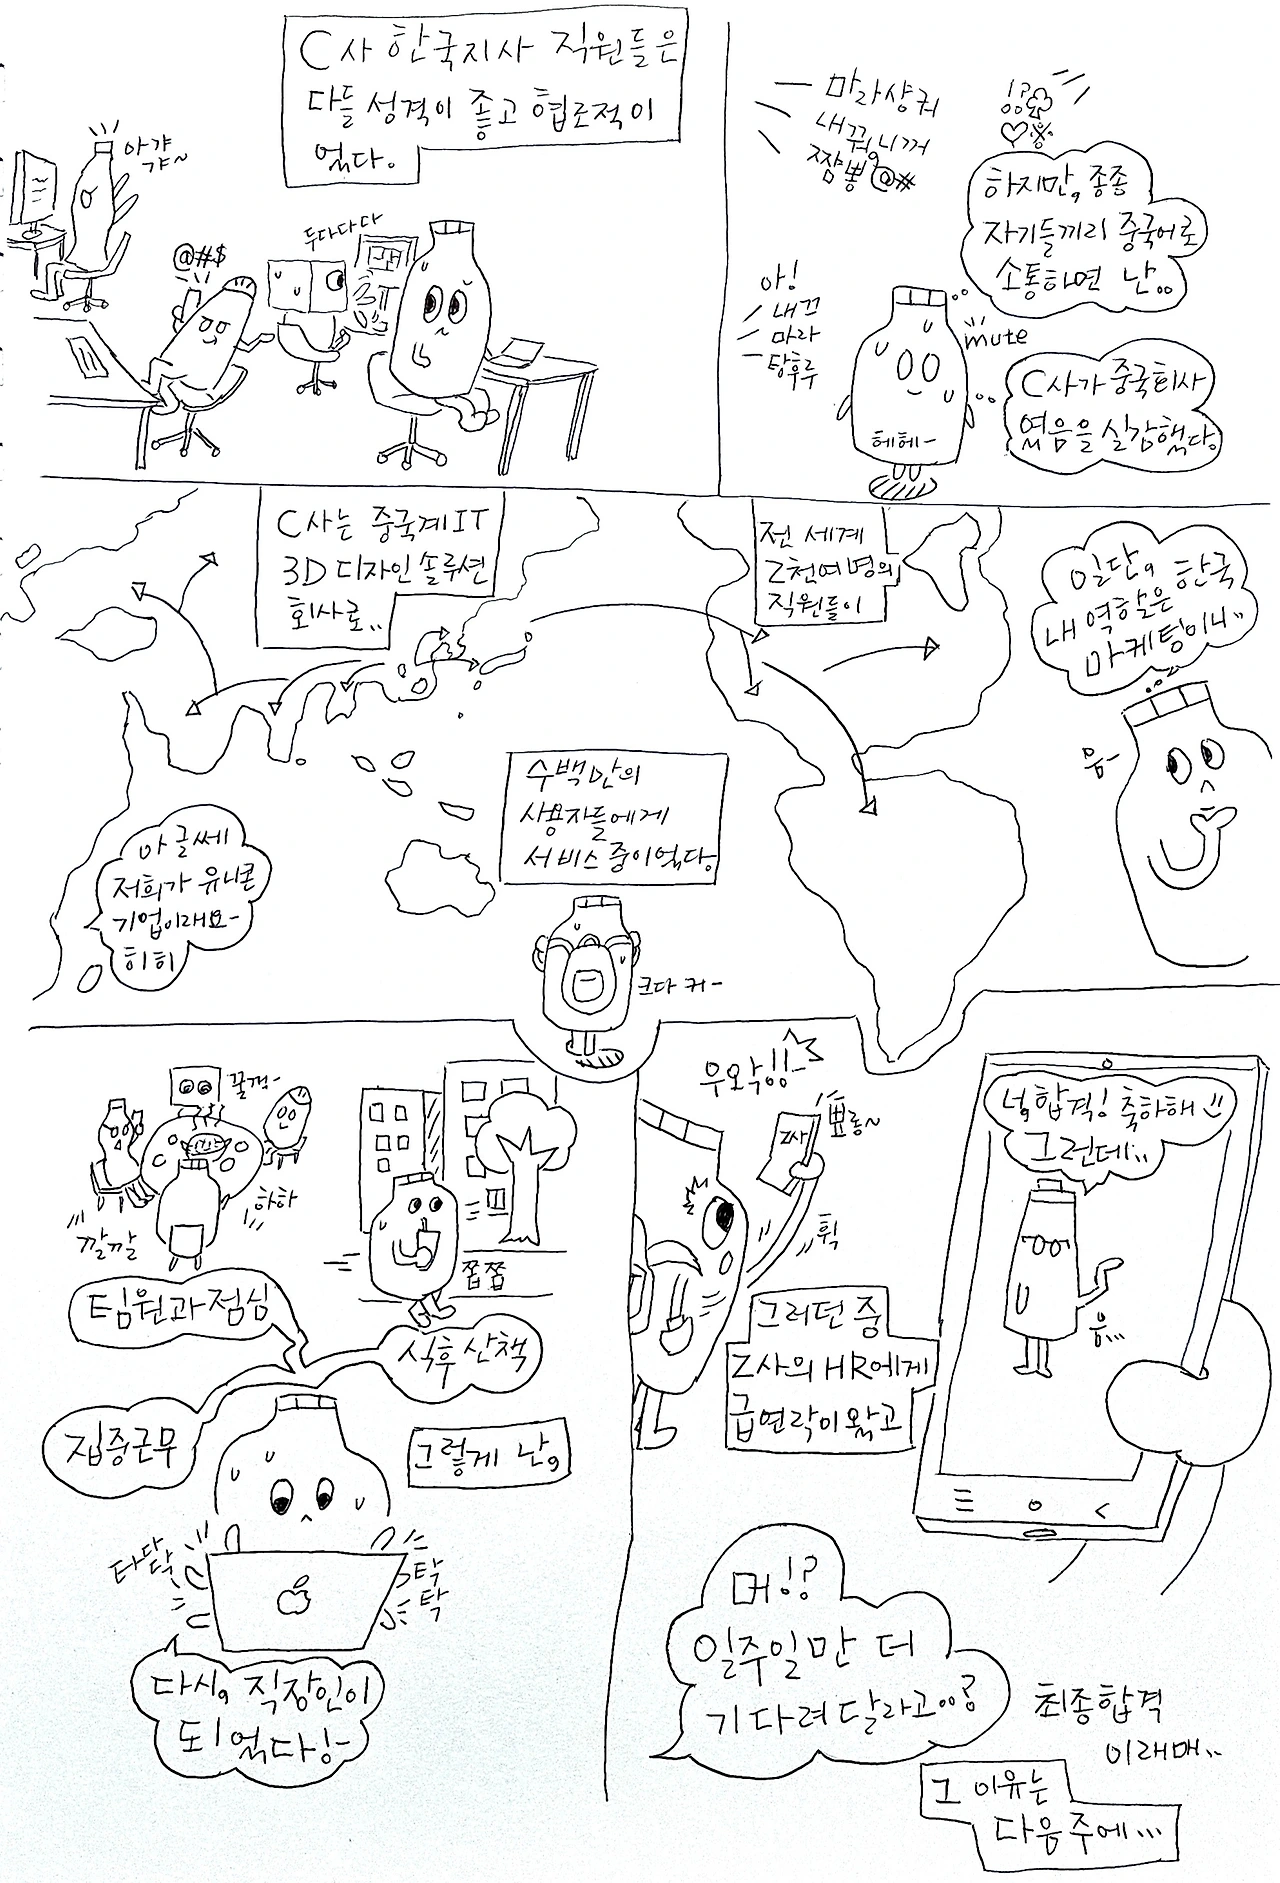 C사 한국지사 직원들은
다들 성격이 좋고 협조적이
었다.
아갸
갸~
@#$
두다다다
마라샹궈
내꿔,니꺼
짬뽕@#
!?
하지만, 종종
자기들끼리 중국어로
소통하면 난..
아!
내끄
마라
탕후루
mute
헤헤-
C사가 중국회사
였음을 실감했다.
C사는 중국계 IT
3D 디자인 솔루션
회사로..
전 세계
2천여명의
직원들이
일단, 한국
내 역할은
마케팅이니..
음-
수백만의
사용자들에게
서비스 중이었다.
아 글쎄
저희가 유니콘
기업이래요-
히히
크다 커-
꿀꺽-
깔깔
하하
쫍쫍
팀원과 점심
식후 산책
집중근무
그렇게 난,
타닥
탁
탁
탁
다시, 직장인이
되었다!-
우와악!!-
Z사
뾰롱~
휙
그러던 중
Z사의 HR에게
급연락이 왔고
너, 합격! 축하해!!
그런데..
음...
머!?
일주일만 더
기다려달라고..?
최종합격
이래매..
그 이유는
다음 주에...